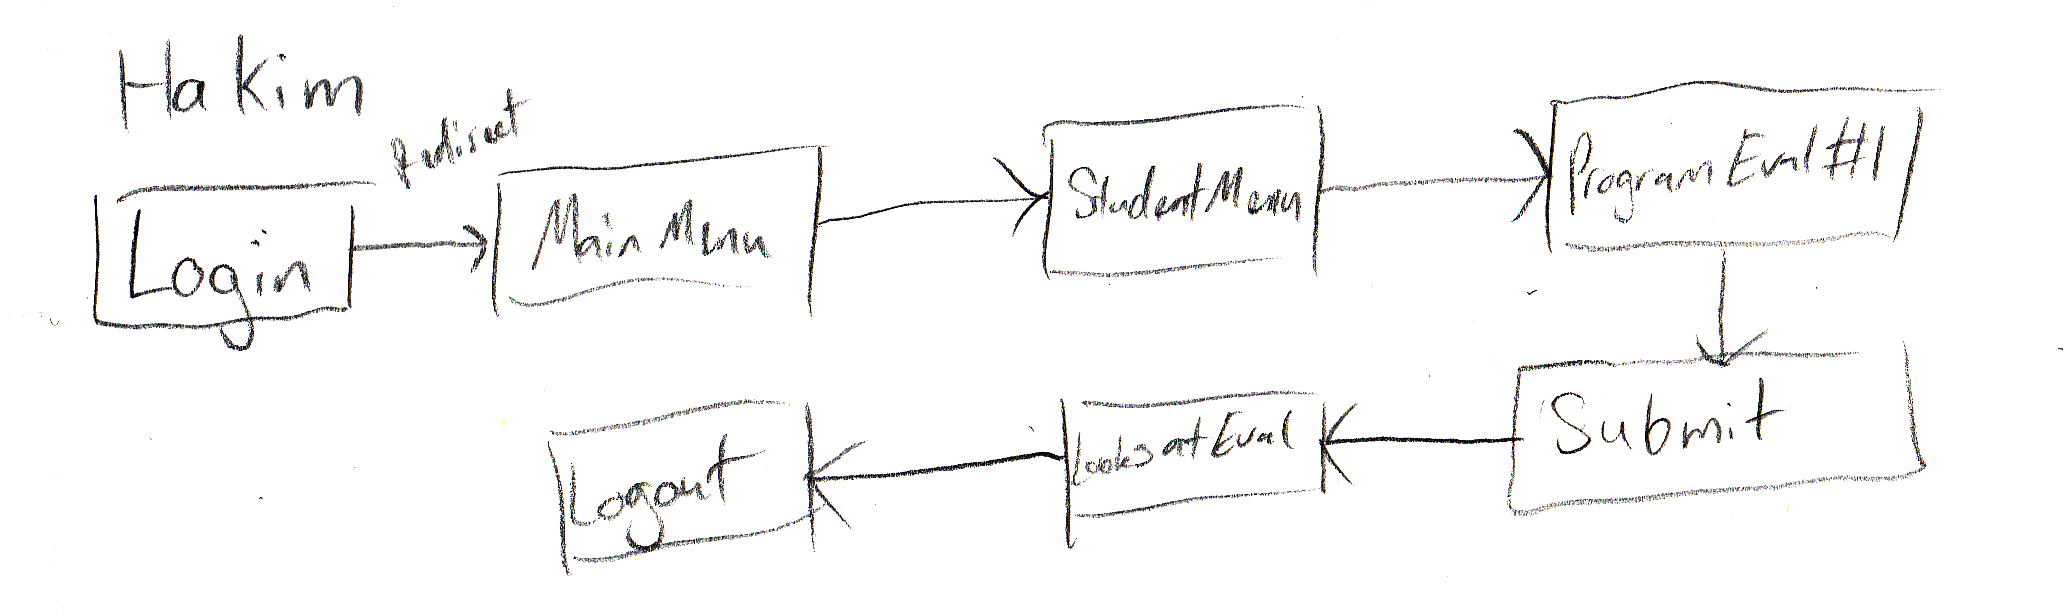 Hakim
Redirect
Login
Main Menu
Student Menu
Program Eval #1
Submit
Looks at Eval
Logout